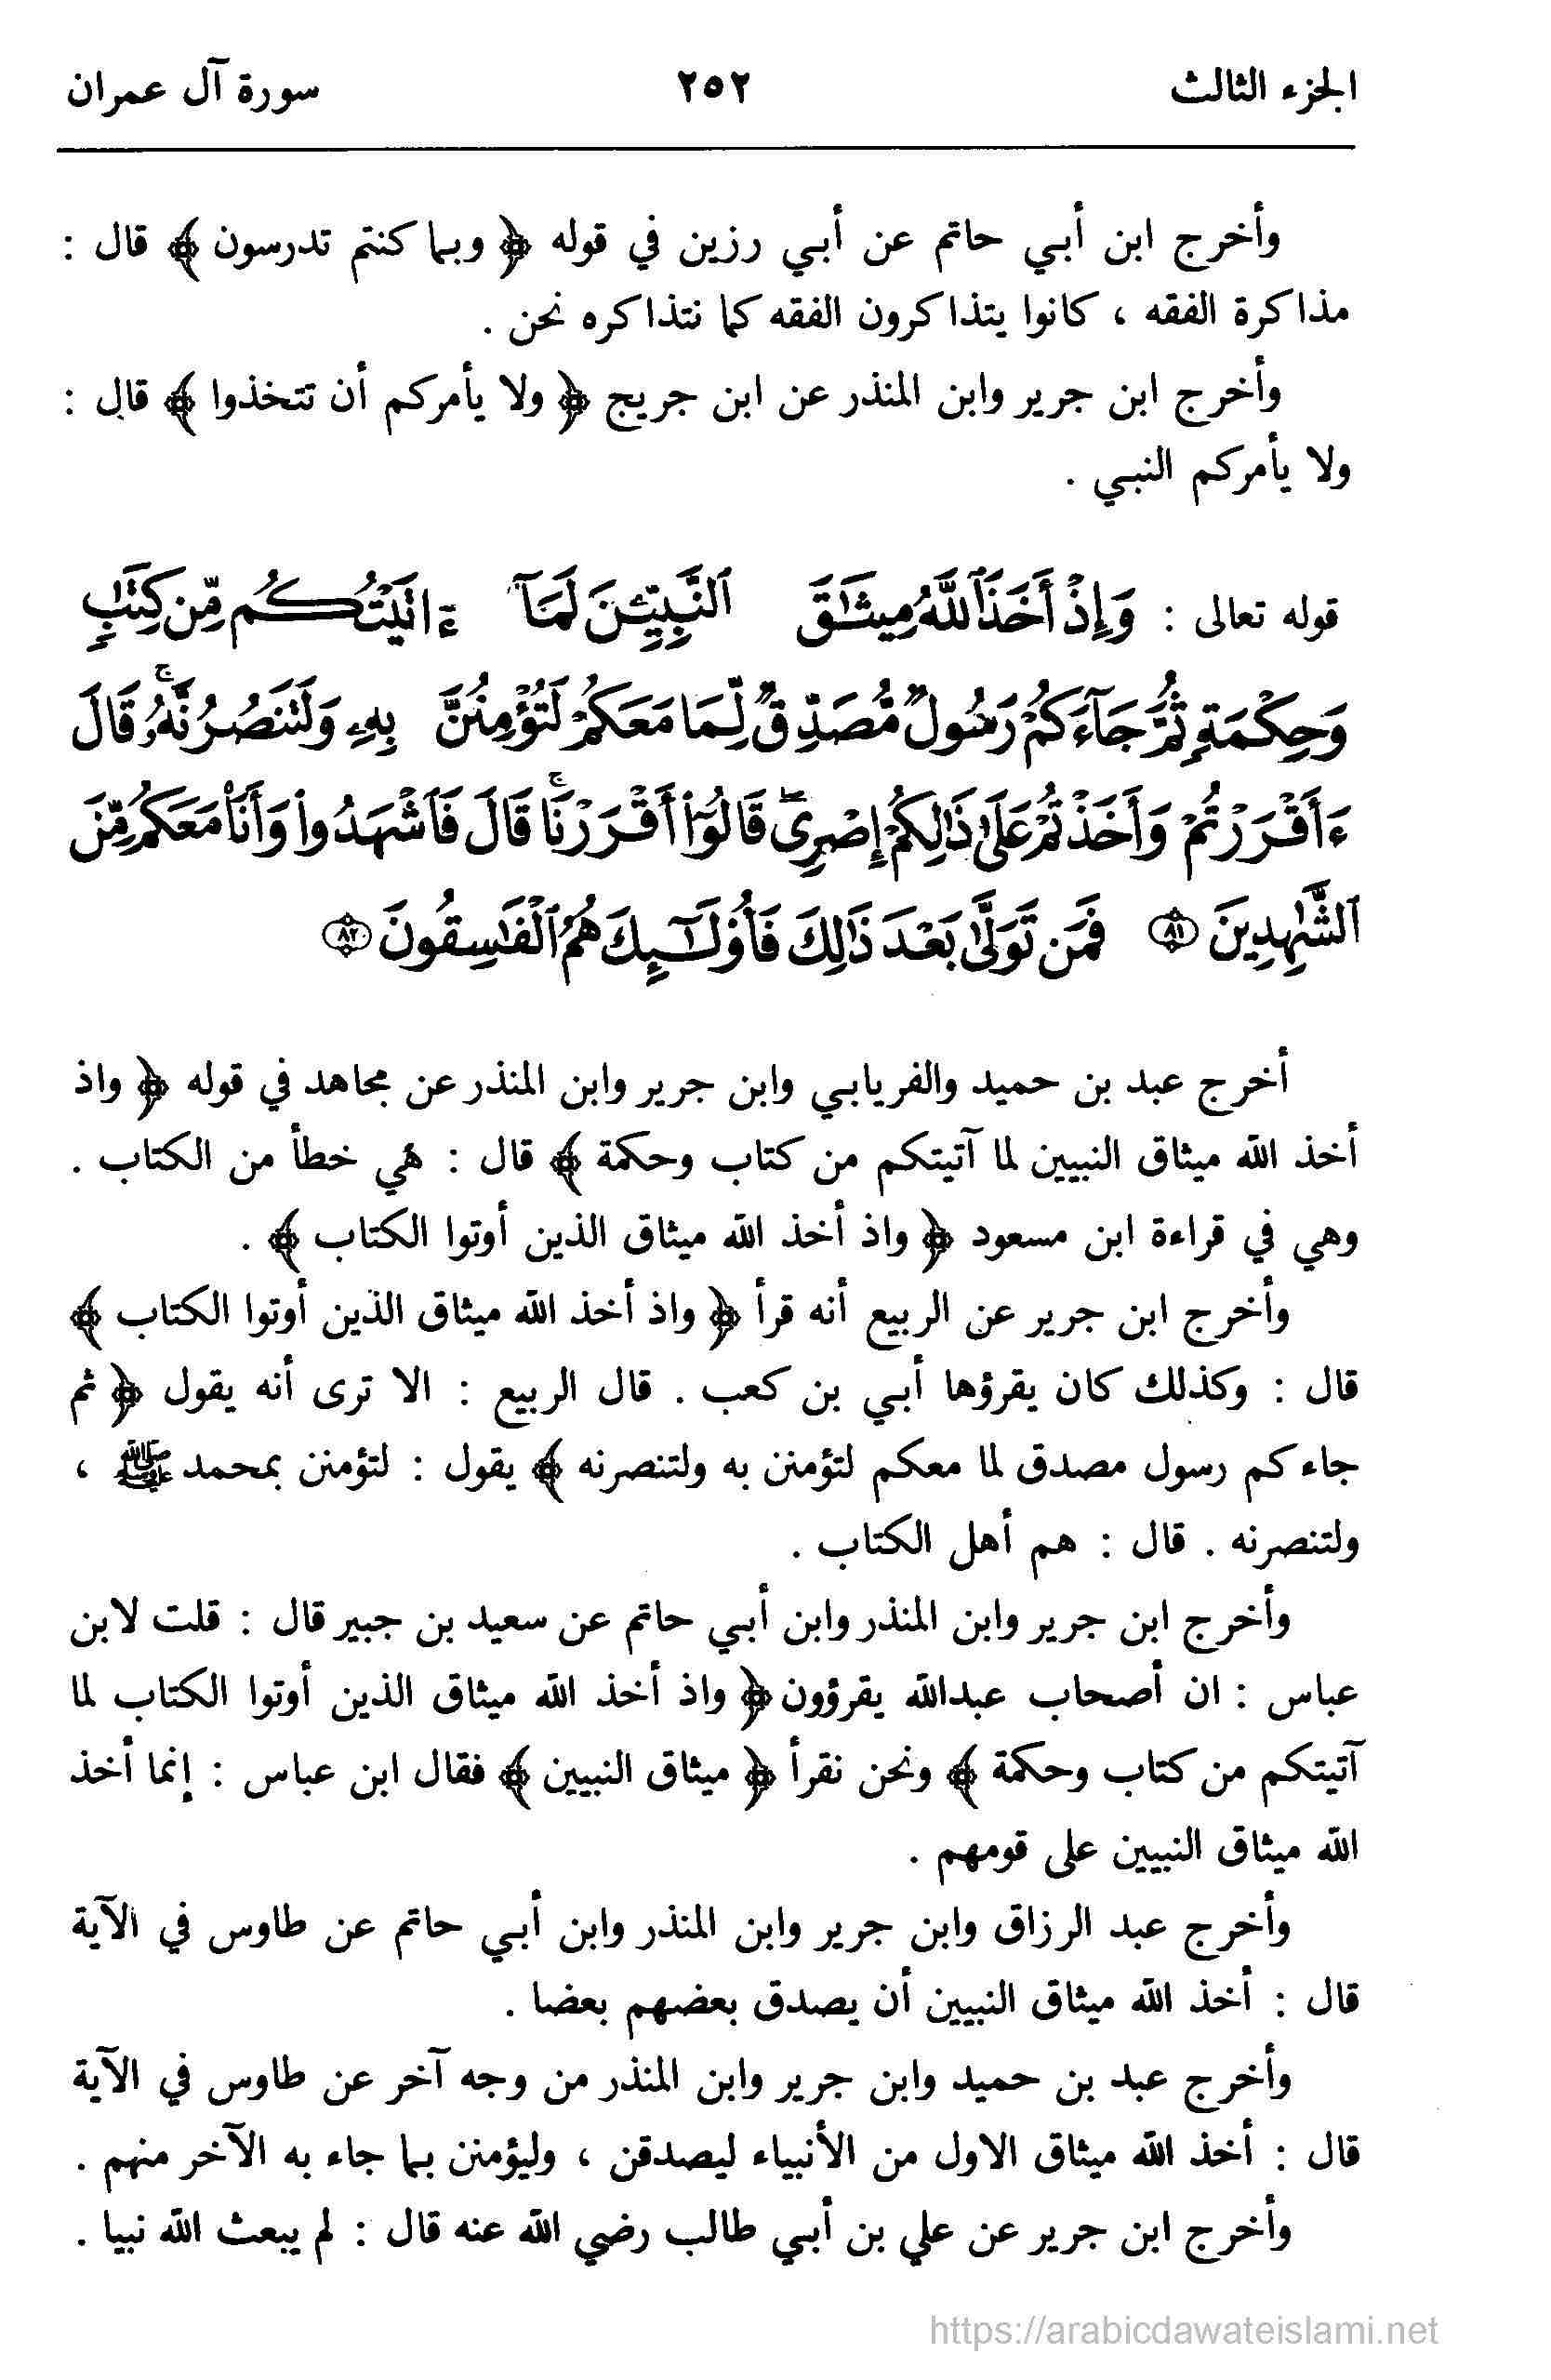 الجزء الثالث ٢٥٢ سورة آل عمران
وأخرج ابن أبي حاتم عن أبي رزين في قوله ﴿ وبما كنتم تدرسون ﴾ قال :
مذاكرة الفقه ، كانوا يتذاكرون الفقه كما نتذاكره نحن .
وأخرج ابن جرير وابن المنذر عن ابن جريج ﴿ ولا يأمركم أن تتخذوا ﴾ قال :
ولا يأمركم النبي .
قوله تعالى : وَإِذْ أَخَذَ ٱللَّهُ مِيثَٰقَ ٱلنَّبِيِّـۧنَ لَمَآ ءَاتَيْتُكُم مِّن كِتَٰبٍ
وَحِكْمَةٍ ثُمَّ جَآءَكُمْ رَسُولٌ مُّصَدِّقٌ لِّمَا مَعَكُمْ لَتُؤْمِنُنَّ بِهِۦ وَلَتَنصُرُنَّهُۥ ۚ قَالَ
ءَأَقْرَرْتُمْ وَأَخَذْتُمْ عَلَىٰ ذَٰلِكُمْ إِصْرِى ۖ قَالُوٓا۟ أَقْرَرْنَا ۚ قَالَ فَٱشْهَدُوا۟ وَأَنَا۠ مَعَكُم مِّنَ
ٱلشَّٰهِدِينَ ﴿٨١﴾ فَمَن تَوَلَّىٰ بَعْدَ ذَٰلِكَ فَأُو۟لَٰٓئِكَ هُمُ ٱلْفَٰسِقُونَ ﴿٨٢﴾
أخرج عبد بن حميد والفريابي وابن جرير وابن المنذر عن مجاهد في قوله ﴿ واذ
أخذ الله ميثاق النبيين لما آتيتكم من كتاب وحكمة ﴾ قال : هي خطأ من الكتاب .
وهي في قراءة ابن مسعود ﴿ واذ أخذ الله ميثاق الذين أوتوا الكتاب ﴾ .
وأخرج ابن جرير عن الربيع أنه قرأ ﴿ واذ أخذ الله ميثاق الذين أوتوا الكتاب ﴾
قال : وكذلك كان يقرؤها أبي بن كعب . قال الربيع : الا ترى أنه يقول ﴿ ثم
جاءكم رسول مصدق لما معكم لتؤمنن به ولتنصرنه ﴾ يقول : لتؤمنن بمحمد ﷺ ،
ولتنصرنه . قال : هم أهل الكتاب .
وأخرج ابن جرير وابن المنذر وابن أبي حاتم عن سعيد بن جبير قال : قلت لابن
عباس : ان أصحاب عبدالله يقرؤون ﴿ واذ أخذ الله ميثاق الذين أوتوا الكتاب لما
آتيتكم من كتاب وحكمة ﴾ ونحن نقرأ ﴿ ميثاق النبيين ﴾ فقال ابن عباس : إنما أخذ
الله ميثاق النبيين على قومهم .
وأخرج عبد الرزاق وابن جرير وابن المنذر وابن أبي حاتم عن طاوس في الآية
قال : أخذ الله ميثاق النبيين أن يصدق بعضهم بعضا .
وأخرج عبد بن حميد وابن جرير وابن المنذر من وجه آخر عن طاوس في الآية
قال : أخذ الله ميثاق الاول من الأنبياء ليصدقن ، وليؤمنن بما جاء به الآخر منهم .
وأخرج ابن جرير عن علي بن أبي طالب رضي الله عنه قال : لم يبعث الله نبيا .
https://arabicdawateislami.net